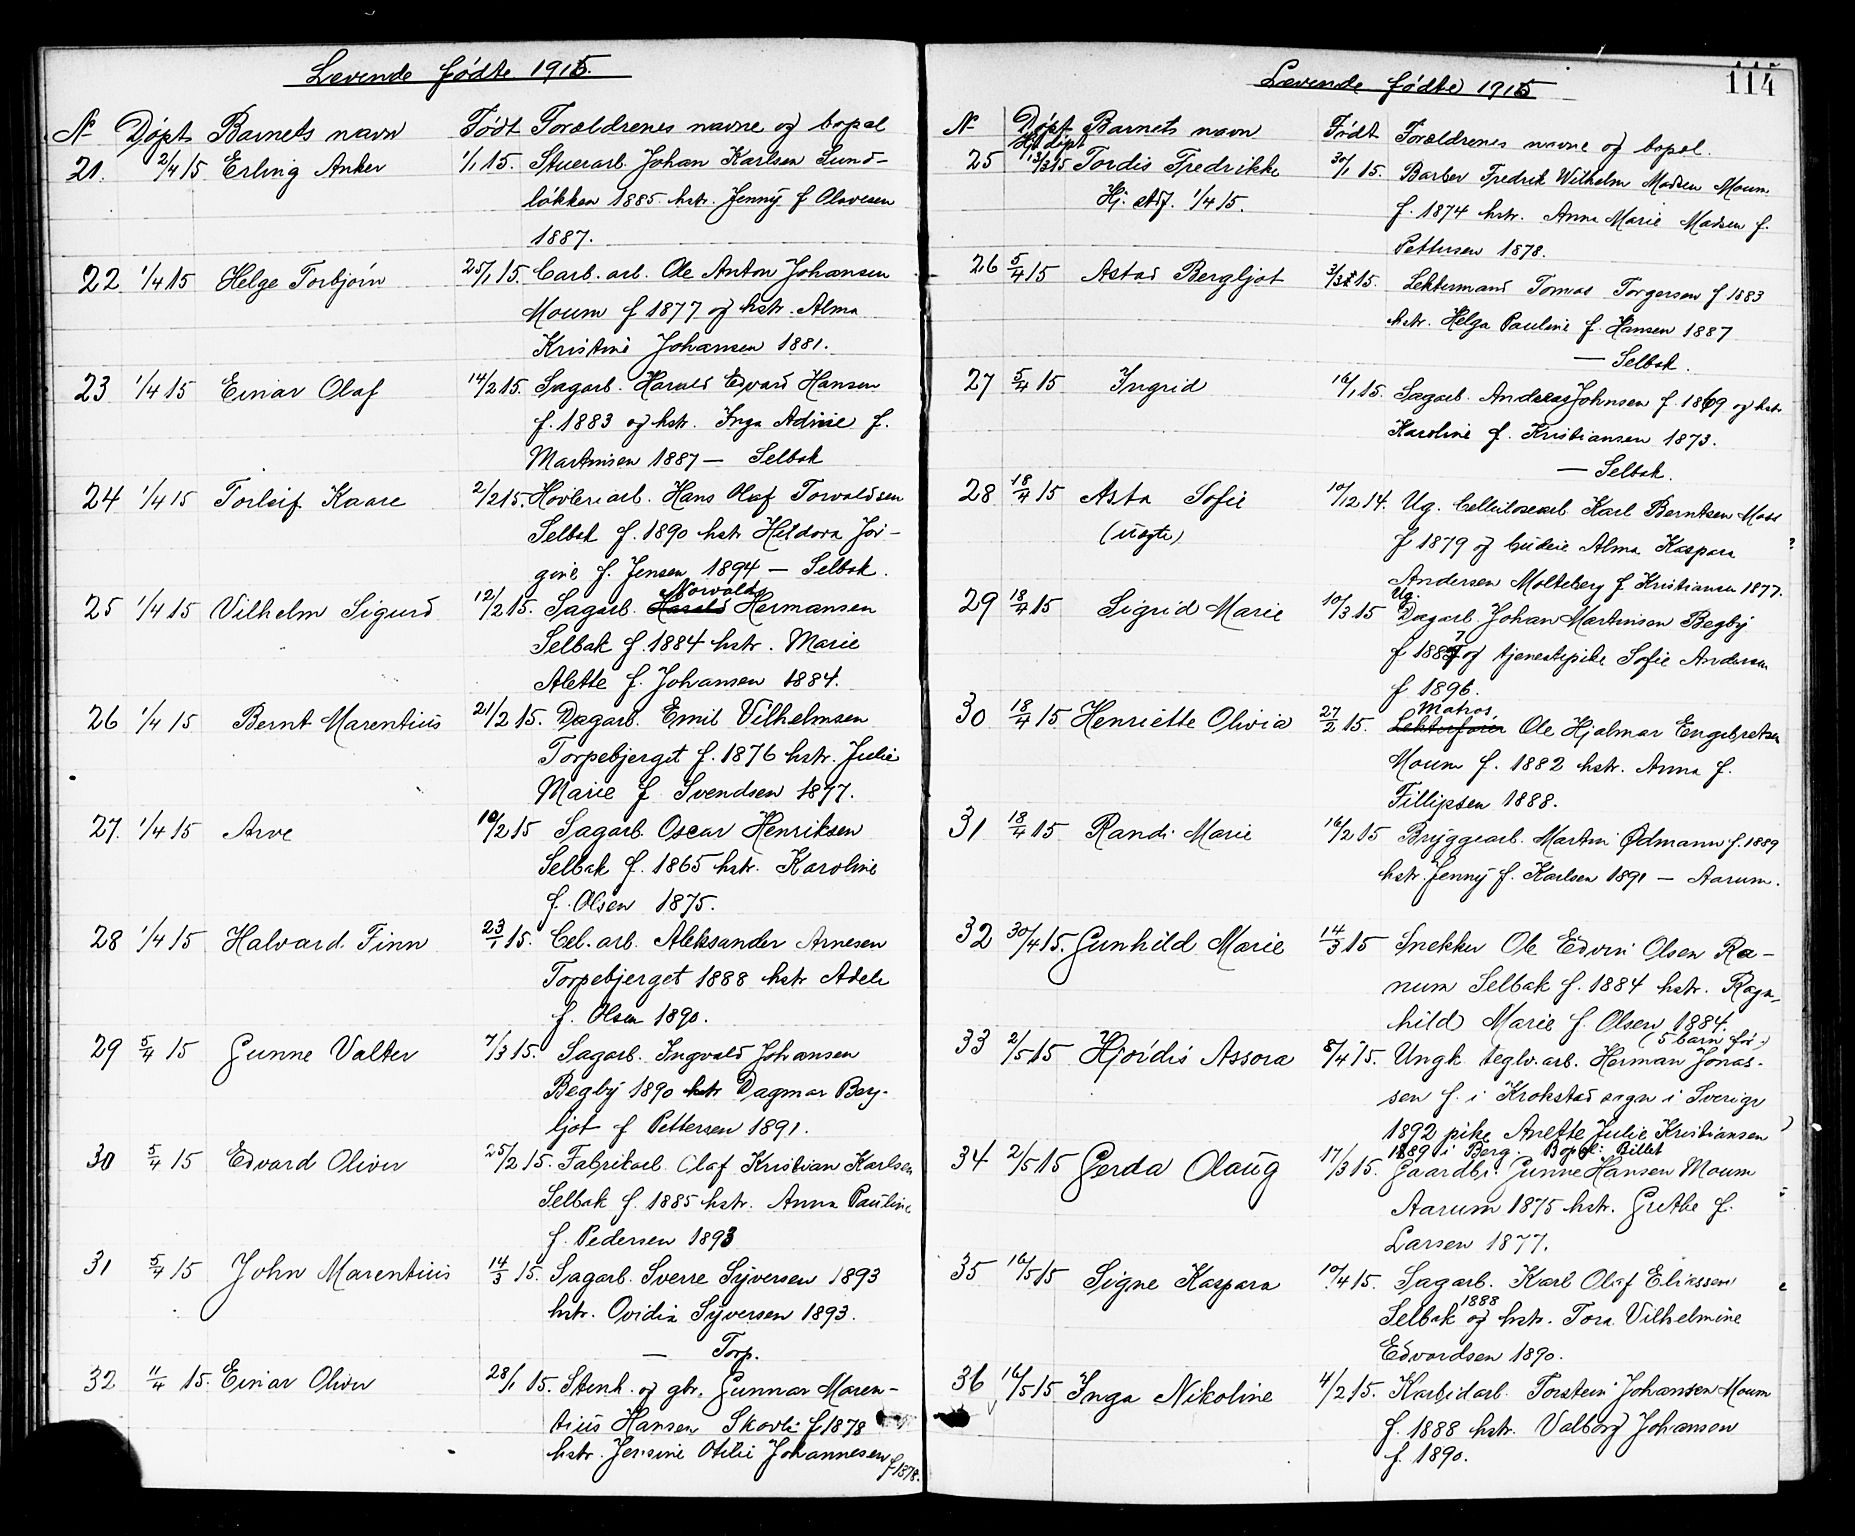 Levende fødte 1915.
N Døpt Barnets navn Født Forældrenes navne og bopæl
21. 2/4 15 Erling Anker 1/1 15. Stuerarb. Johan Karlsen Lund-
løkken 1885. hstr. Jenny f Olavesen
1887.
22 1/4 15 Helge Torbjørn 25/1 15. Carb. arb. Ole Anton Johansen
Moum f 1877 og hstr. Alma
Kristine Johansen 1881.
23 1/4 15 Einar Olaf 14/2 15. Sagarb. Harald Edvard Hansen
f. 1883 og hstr. Inga Adine f.
Martinsen 1887 — Selbak
24 1/4 15 Torleif Kaare 2/2 15. Høvleriarb. Hans Olaf Torvaldsen
Selbak f. 1890 hstr Heldora Jør-
gine f. Jensen 1894 — Selbak.
Norvald
25 1/4 15 Vilhelm Sigurd 12/2 15. Sagarb. Harald Hermansen
Selbak f. 1884 hstr. Marie
Alette f. Johansen 1884.
26 1/4 15 Bernt Marentius 21/2 15. Dagarb. Emil Vilhelmsen
Torpebjerget f. 1876 hstr. Julie
Marie f Svendsen 1877.
27. 1/4 15 Arve 10/2 15 Sagarb. Oscar Henriksen
Selbak f. 1865 hstr. Karoline
f. Olsen 1875.
28 1/4 15 Halvard Finn 23/1 15. Cel. arb. Aleksander Arnesen
Torpebjerget 1888 hstr Adele
f. Olsen 1890.
29 5/4 15 Gunne Valter 7/3 15. Sagarb. Ingvald Johansen
Begby 1890 hstr Dagmar Berg-
ljot f Pettersen 1891.
30 5/4 15 Edvard Oliver 25/2 15. Fabrikarb. Olaf Kristian Karlsen
Selbak f. 1885 hstr. Anna Pauline
f. Pedersen 1893
31 5/4 15 John Marentius 14/3 15. Sagarb. Sverre Syversen 1893
hstr. Ovidia Syversen 1893.
— Torp.
32 11/4 15. Einar Oliver 28/1 15. Stenh. og gbr. Gunnar Maren-
tius Hansen Skovli f 1878
hstr. Jensine Otilie Johannesen f 1878.
114
Levende fødte 1915
N Døpt Barnets navn Født Forældrenes navne og bopæl.
Hj. døpt
25 13/3 15 Tordis Fredrikke 30/1 15. Barber Fredrik Wilhelm Madsen Moum
Hj. stdf. 1/4 15. f. 1874 hstr. Anna Marie Madsen f.
Pettersen 1878.
26 5/4 15 Astad Bergljot 3/3 15. Lektermand Tomas Torgersen f 1883
hstr. Helga Pauline f. Hansen 1887
— Selbak.
27 5/4 15 Ingrid 16/1 15. Sagarb. Andreas Johnsen f. 1869 og hstr
Karoline f. Kristiansen 1873.
— Selbak.
28 18/4 15 Asta Sofie 10/12 14. Ug. Cellulosearb Karl Berntsen Moss
(uægte) f 1879 og Alma Kaspara
Andersen Molteberg f Kristiansen 1877.
Ug.
29 18/4 15 Sigrid Marie 10/3 15 Dagarb. Johan Martinsen Begby
f 1887 og tjenestepike Sofie Andersen
f 1896.
Matros
30 18/4 15 Henriette Olivia 27/2 15. Lekterfører Ole Hjalmar Engebretsen
Moum f. 1882 hstr. Anna f.
Fillipsen 1888.
31 18/4 15 Randi Marie 16/2 15 Bryggearb. Martin Ødmann f. 1889
hstr. Jenny f. Karlsen 1891 — Aarum.
32 30/4 15. Gunhild Marie 14/3 15 Snekker Ole Edvin Olsen Ra-
num Selbak f. 1884 hstr. Ragn-
hild Marie f. Olsen 1884.
(5 barn før.)
33 2/5 15 Hjørdis Assora 8/4 15. Ungk. teglv.arb. Herman Jonas-
sen f. i Krokstad sogn i Sverige
1892 pike Anette Julie Kristiansen
1889 i Berg. Bopæl: Billet
34 2/5 15 Gerda Olaug 17/3 15. Gaardbr. Gunne Hansen Moum
Aarum 1875 hstr. Grethe f.
Larsen 1877.
35 16/5 15 Signe Kaspara 10/4 15. Sagarb. Karl Olaf Eliassen
Selbak 1888 og hstr. Tora Vilhelmine
Edvardsen 1890.
36 16/5 15 Inga Nikoline 4/2 15. Karbidarb. Torstein Johansen Moum
f. 1888 hstr. Valborg Johansen
f. 1890.